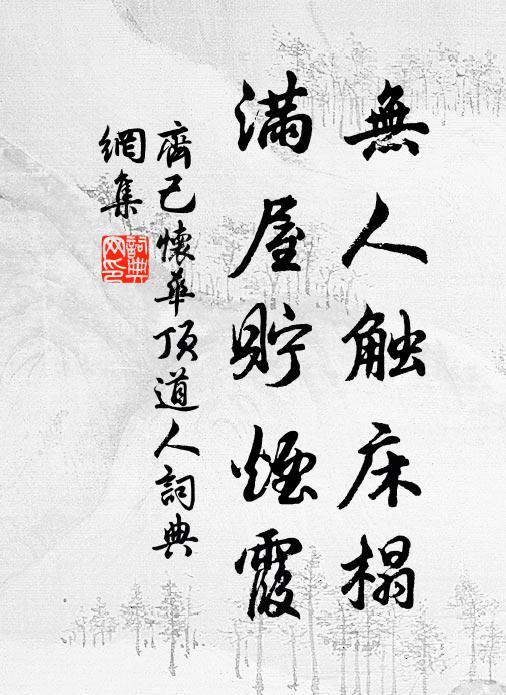 無人触床榻
滿屋貯煙霞
齊己懷華頂道人詞典
網集
詞典
网印